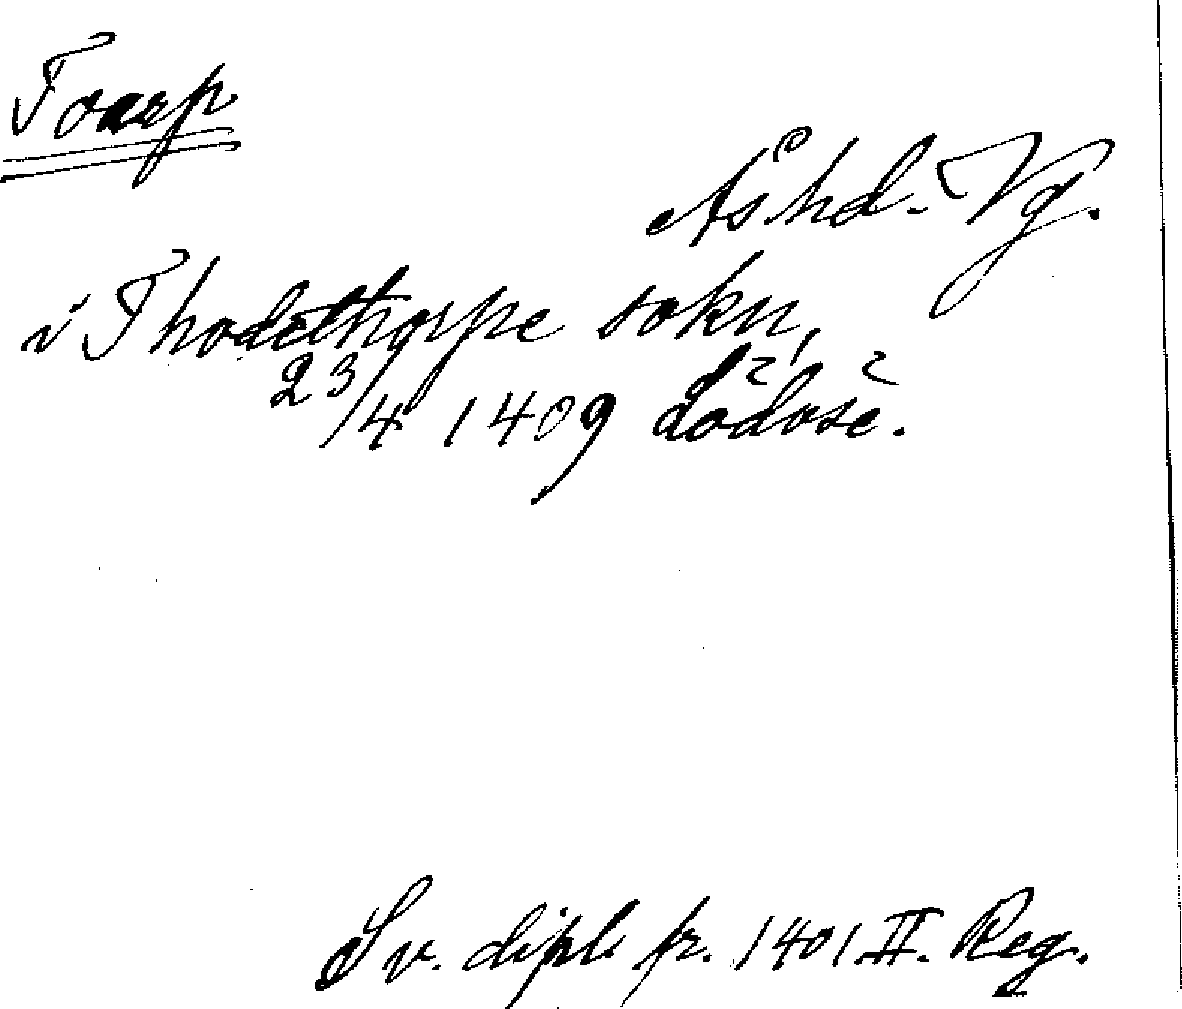 Toarp
Ås hd. Vg.
i Thodethorpe sokn,
23/4 1409 Lödöse.
Sv. dipl. fr. 1401. II. Reg.